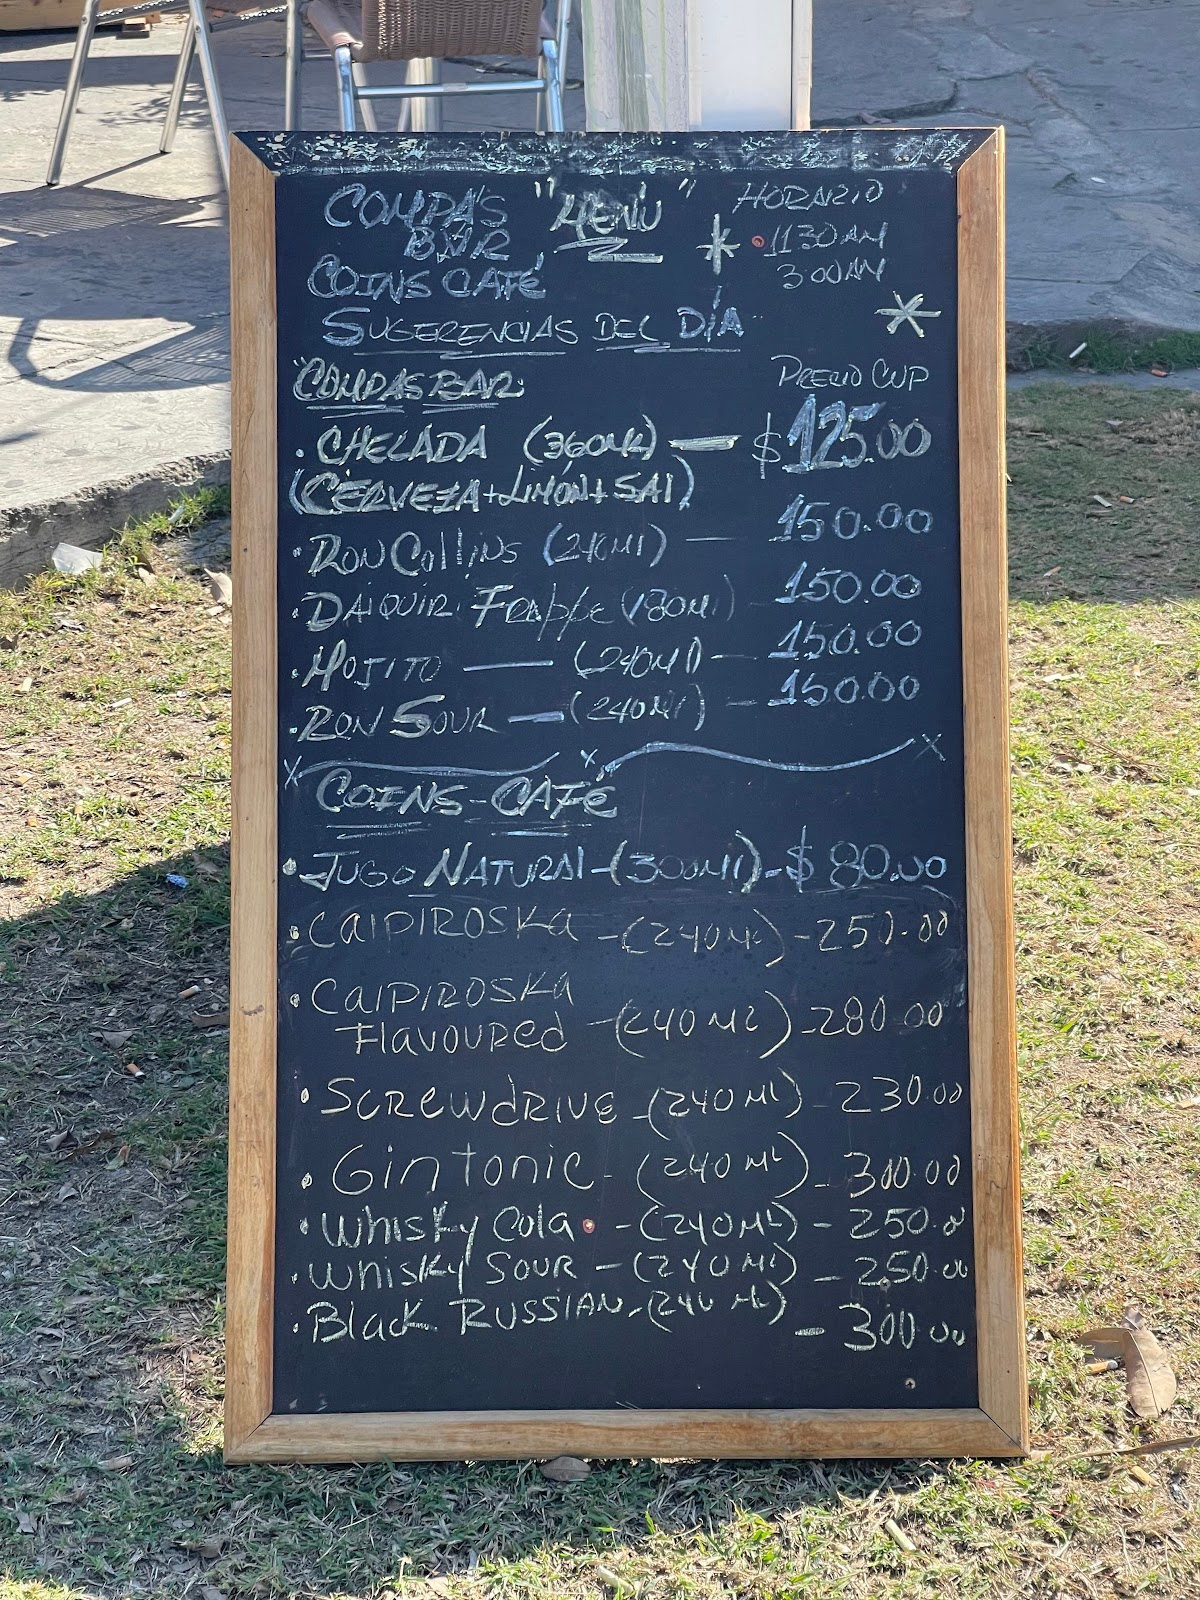 COMPAS "MENÚ" HORARIO
BAR * 1130AM
COINS CAFÉ 300AM
SUGERENCIAS DEL DÍA *
"COMPAS BAR: PRECIO CUP
• CHELADA (360ML) — $125.00
(CERVEZA+LIMÓN+SAL)
• RON Collins (240Ml) — 150.00
• DAIQUIRI FRAPPE (180Ml) - 150.00
• MOJITO — (240Ml) - 150.00
• RON SOUR — (240Ml) - 150.00
x x x
COINS-CAFÉ
• JUGO NATURAl-(300Ml)-$80.00
• CAIPIROSKA -(240ML)-250.00
• CAIPIROSKA
FlavouRed -(240ML)-280.00
• SCREWdRIVE-(240ML)-230.00
• Gin Tonic-(240ML)-300.00
• Whisky Cola -(240ML)-250.0
• Whisky SOUR-(240ML)-250.00
• Black RUSSIAN-(240ML)
-300.00